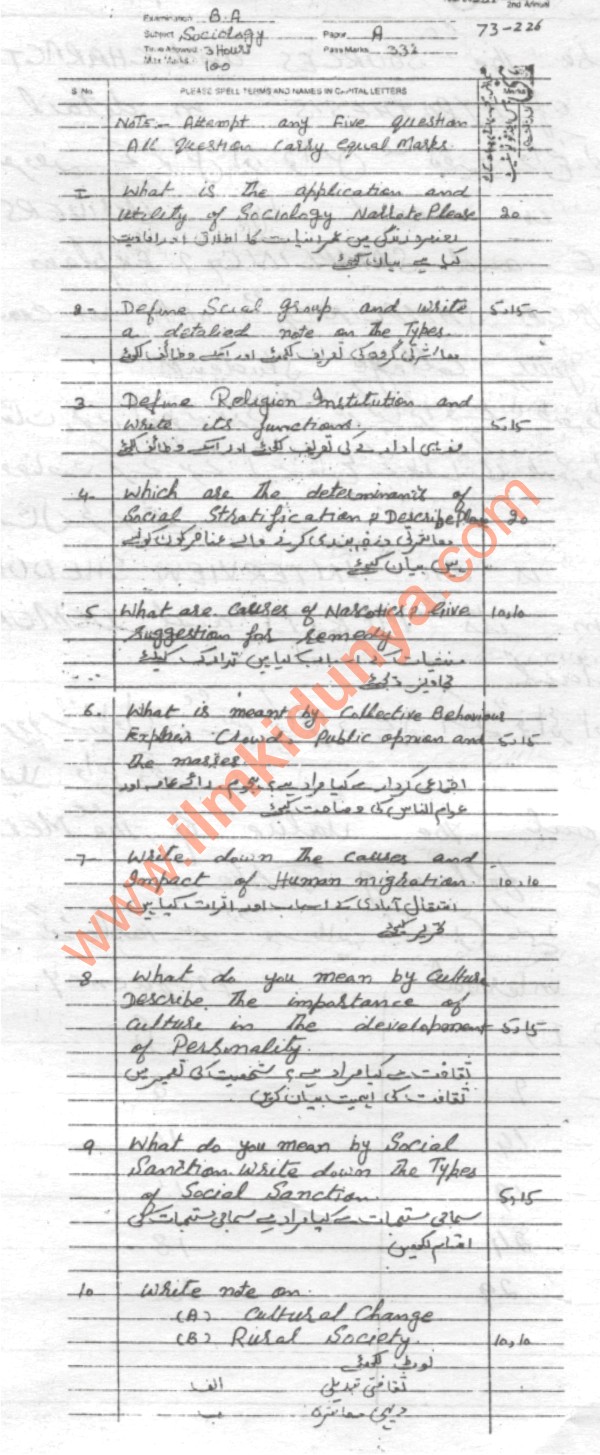 2nd Annual
Examination B.A
Subject Sociology Paper A 73-226
Time Allowed 3 Hours Pass Marks 33%
Max Marks 100
S. No. PLEASE SPELL TERMS AND NAMES IN CAPITAL LETTERS
NOTE:- Attempt any Five question
All question carry equal Marks.
I- What is the application and
utility of Sociology Narrate Please 20
عمرانیات کا اطلاق اور افادیت
کیا ہے بیان کیجئے
2- Define Scial group and write 5,15
a detalied note on the Types.
معاشرتی گروہ کی تعریف کیجئے اور اسکے وظائف لکھئے
3 Define Religion Institution and
Write its functions. 5,15
مذہبی ادارے کی تعریف کیجئے اور اسکے وظائف لکھئے
4- Which are the determinants of
Social Stratification? Describe 20
معاشرتی درجہ بندی کرنے والے عناصر کون کونسے
ہیں بیان کیجئے
5 What are causes of Narcotics? Give 10,10
suggestion for remedy
منشیات کے اسباب کیا ہیں تدارک کیلئے
تجاویز دیجئے
6. What is meant by Collective Behaviour
Explain Crowd. Public opnion and 5,15
the masses.
اجتماعی کردار سے کیا مراد ہے؟ ہجوم، رائے عامہ اور
عوام الناس کی وضاحت کیجئے
7- Write down the causes and
Impact of Human migration. 10,10
انتقال آبادی کے اسباب اور اثرات کیا ہیں
تحریر کیجئے
8 What do you mean by Culture
Describe the importance of
culture in the development 5,15
of Personality.
ثقافت سے کیا مراد ہے؟ شخصیت کی تعمیر میں
ثقافت کی اہمیت بیان کریں
9 What do you mean by Social
Sanction. Write down the Types
of Social Sanction. 5,15
سماجی مستجات سے کیا مراد ہے سماجی مستجات کی
اقسام لکھیں
10 Write note on.
(A) Cultural Change
(B) Rural Society. 10,10
نوٹ لکھئے
ثقافتی تبدیلی الف
دیہی معاشرہ ب
www.ilmkidunya.com